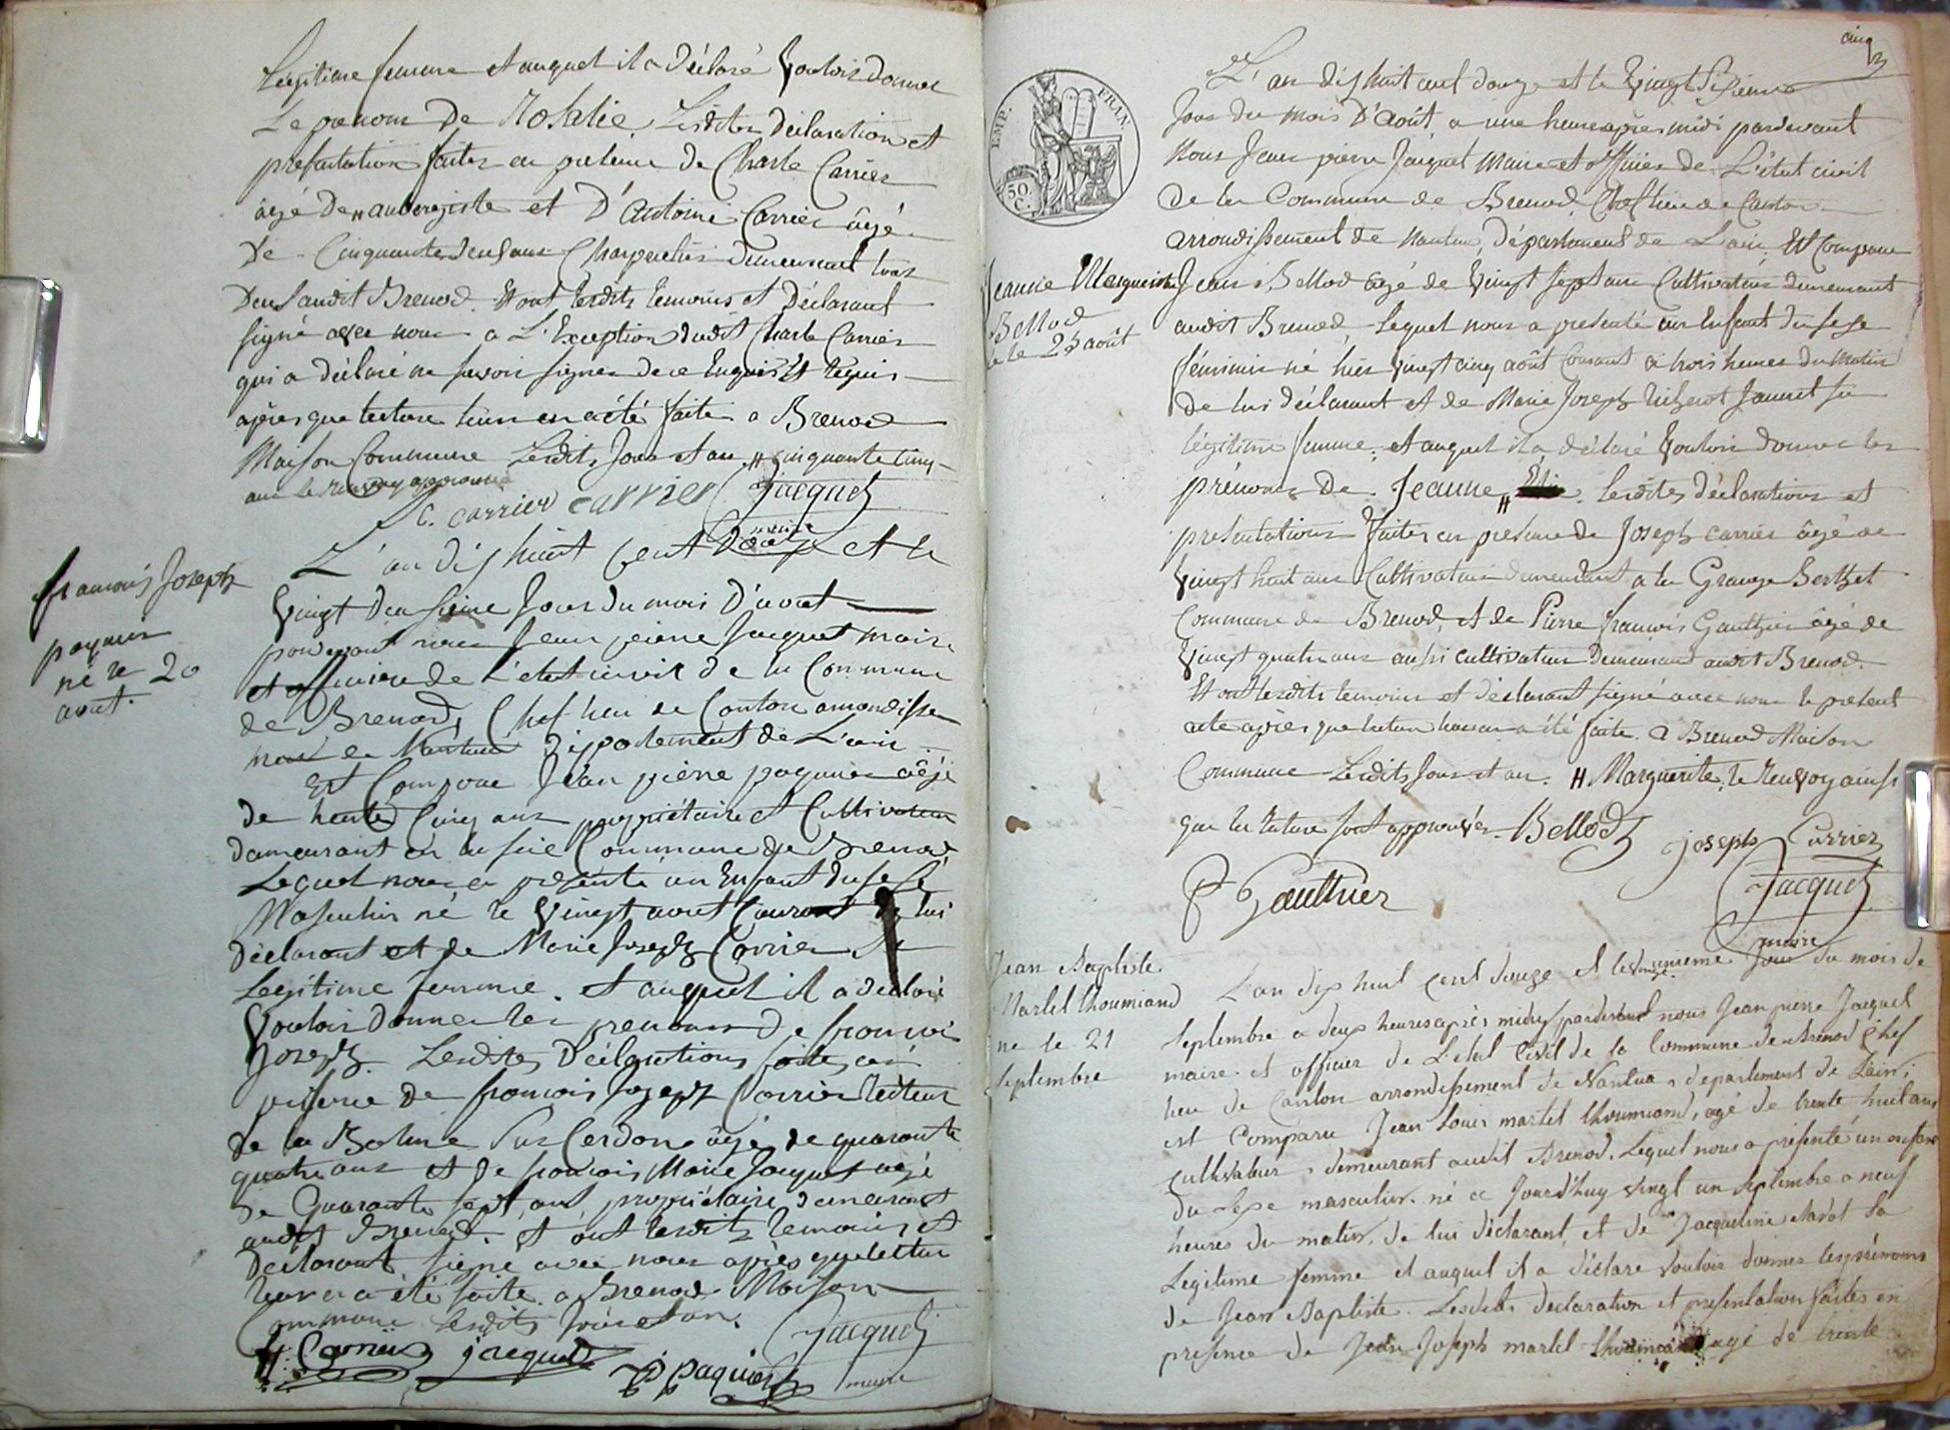 Legitime femme et auquel il a déclaré Vouloir donner
Le prenom de Rosalie. Lesdites déclaration et
presentation faites en presence de Charle Carrier
âgé de " aubergiste et D'antoine Carrier âgé
De Cinquante deux ans Charpentier demeurant tous
Deux audit Brenod. Et ont lesdits temoins et Déclarant
signé avec nous a L'Exception dudit Charle Carrier
qui a déclaré ne savoir signer de ce Enquis Et Requis
après que lecture leur en a été faite a Brenod
Maison Commune Lesdits Jour et an. " cinquante cinq
ans le renvoy approuvé
C. Carrier carrier Jacquet
maire
L'an dix huit Cent Douze et le
Vingt deuxieme Jour du mois D'aout
pardevant nous Jean pierre Jacquet maire
et officiere de L'état civil de la Commune
de Brenod, Chef lieu de Canton arrondisse
ment de Nantua Dippartement de L'ain
Est Comparu Jean pierre paquier âgé
de trente Cinq ans propriétaire et Cultivateur
demeurant en Commune de Brenod
Lequel nous a presenté un Enfant du sexe
Masculin né le Vingt aout Courant de lui
déclarant et de Marie Joseph Carrier sa
Legitime femme. et auquel il a declaré
Vouloir donner les prenoms de francois
Joseph. Lesdites Déclarations faites en
presence de francois Joseph Carrier
de la Balme Sur Cerdon âgé de quarante
quatre ans et de francois Marie Jacquet agé
De Quarante sept ans propriétaire demeurant
audit Brenod. et ont lesdits temoins et
Déclarant signe avec nous après que lectur
leur en a été faite. a Brenod Maison
Commune Lesdits Jour et an.
Jacquet
Carrier jacquet
JP paquier maire
francois Joseph
paquier
né le 20
aout.
cinq
L'an dix huit cent douze et le Vingt Sixieme
Jour du mois D'août a une heure après midi pardevant
Nous Jean pierre Jacquet Maire et officier de L'état civil
De la Commune de Brenod Chef lieu de Canton
arrondissement de Nantua, département de L'ain. Est Comparu
Jean Bellod âgé de Vingt sept ans Cultivateur demeurant
audit Brenod Lequel nous a presenté un Enfant du sexe
féminin né hier Vingt cinq août Courant a trois heures du Matin
De lui déclarant et de Marie Joseph Jannet sa
légitime femme. et auquel il a déclaré Vouloir donner les
prénoms De Jeanne " Lesdites déclarations et
presentations faites en presence de Joseph Carrier âgé de
Vingt huit ans Cultivateur demeurant a la Grange Berthet
Commune de Brenod et de Pierre francois Gauthier âgé de
Vingt quatre ans aussi cultivateur demeurant audit Brenod.
Et ont lesdits temoins et déclarant signé avec nous le present
acte après que lecture leur en a été faite. a Brenod Maison
Commune Lesdits Jour et an. " Marguerite, le Renvoy ainsi
que la rature sont approuvés. Bellod joseph Carrier
P Gauthier Jacquet
maire
Jeanne Marguerite
Bellod
né le 25 août
EMP. FRAN.
50 C.
Jean Baptiste
Martel thoumiand
ne le 21
septembre
L'an dix huit cent douze et le vingt unieme Jour du mois de
Septembre a deux heures après midy pardevant nous Jean pierre Jacquet
maire et officier de L'etat Civil de la Commune de Brenod Chef
lieu de Canton arrondissement de Nantua, département de L'ain;
est Comparu Jean Louis martel thoumiand, agé de trente huit ans
cultivateur, demeurant audit Brenod. Lequel nous a présenté un enfant
du Sexe masculin né ce Jourd'huy vingt un Septembre a neuf
heures du matin, de lui déclarant, et de Jacqueline Savot sa
Legitime femme et auquel il a déclaré Vouloir donner les prénoms
de Jean Baptiste. Lesdites declaration et presentation faites en
presence de Jean Joseph martel thoumiand agé de trente